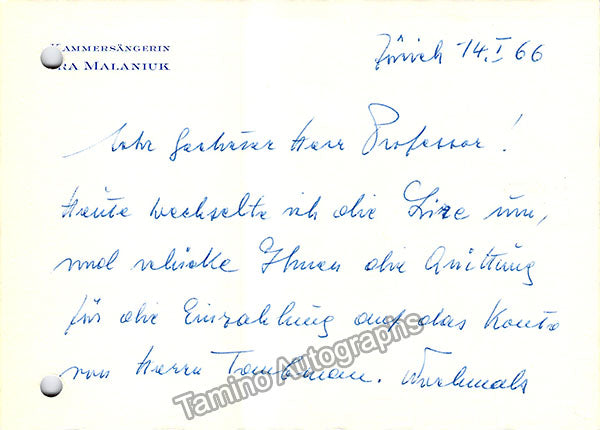 KAMMERSÄNGERIN
RA MALANIUK
Zürich 14. I 66
Sehr geehrter Herr Professor!
Heute wechselte ich die Lire um,
und schicke Ihnen die Quittung
für die Einzahlung auf das Konto
von Herrn Nochmals
Tamino Autographs